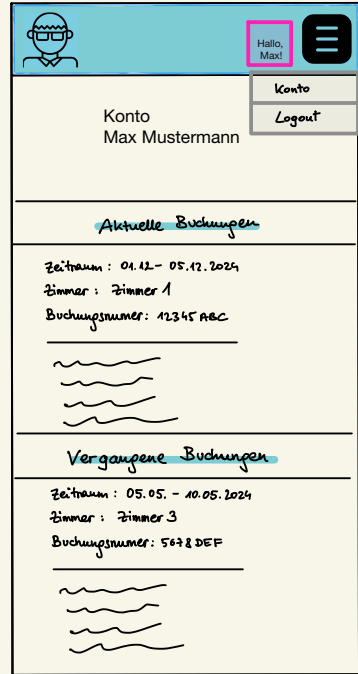 Hallo,
Max!
Konto
Logout
Konto
Max Mustermann
Aktuelle Buchungen
Zeitraum : 01.12 - 05.12.2024
Zimmer : Zimmer 1
Buchungsnumer: 12345 ABC
Vergangene Buchungen
Zeitraum : 05.05. - 10.05.2024
Zimmer : Zimmer 3
Buchungsnumer: 5678 DEF